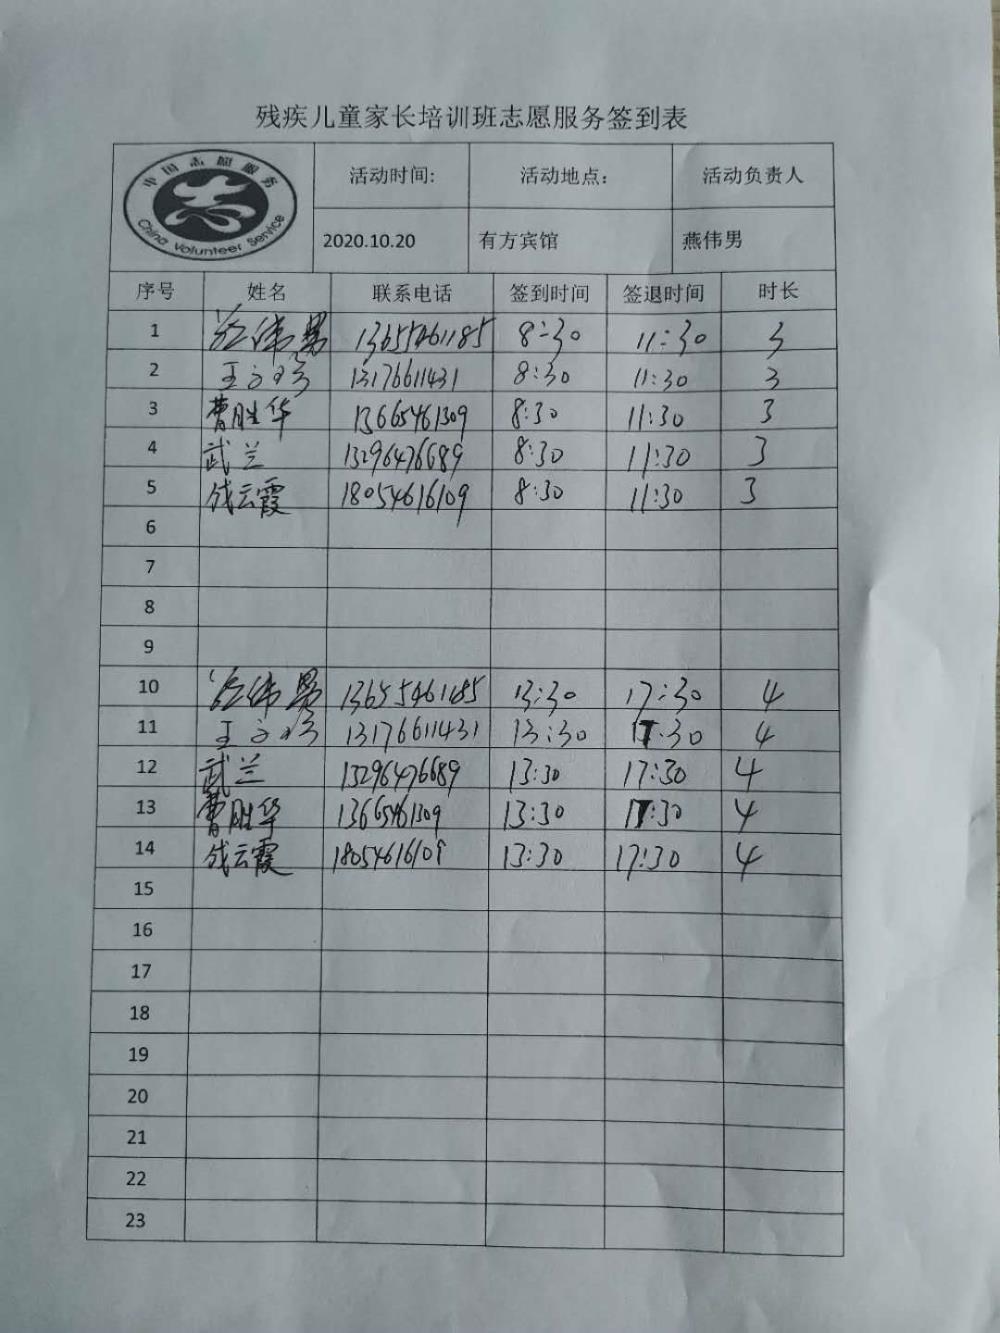 残疾儿童家长培训班志愿服务签到表
中国志愿服务
China Volunteer Service
活动时间: 活动地点: 活动负责人
2020.10.20 有方宾馆 燕伟男
序号 姓名 联系电话 签到时间 签退时间 时长
1 伟男 13655461185 8:30 11:30 3
2 王 13176611431 8:30 11:30 3
3 曹胜华 13665461309 8:30 11:30 3
4 武兰 13296476689 8:30 11:30 3
5 云霞 18054616109 8:30 11:30 3
6
7
8
9
10 伟男 13655461185 13:30 17:30 4
11 王 13176611431 13:30 17:30 4
12 武兰 13296476689 13:30 17:30 4
13 曹胜华 13665461309 13:30 17:30 4
14 云霞 18054616109 13:30 17:30 4
15
16
17
18
19
20
21
22
23